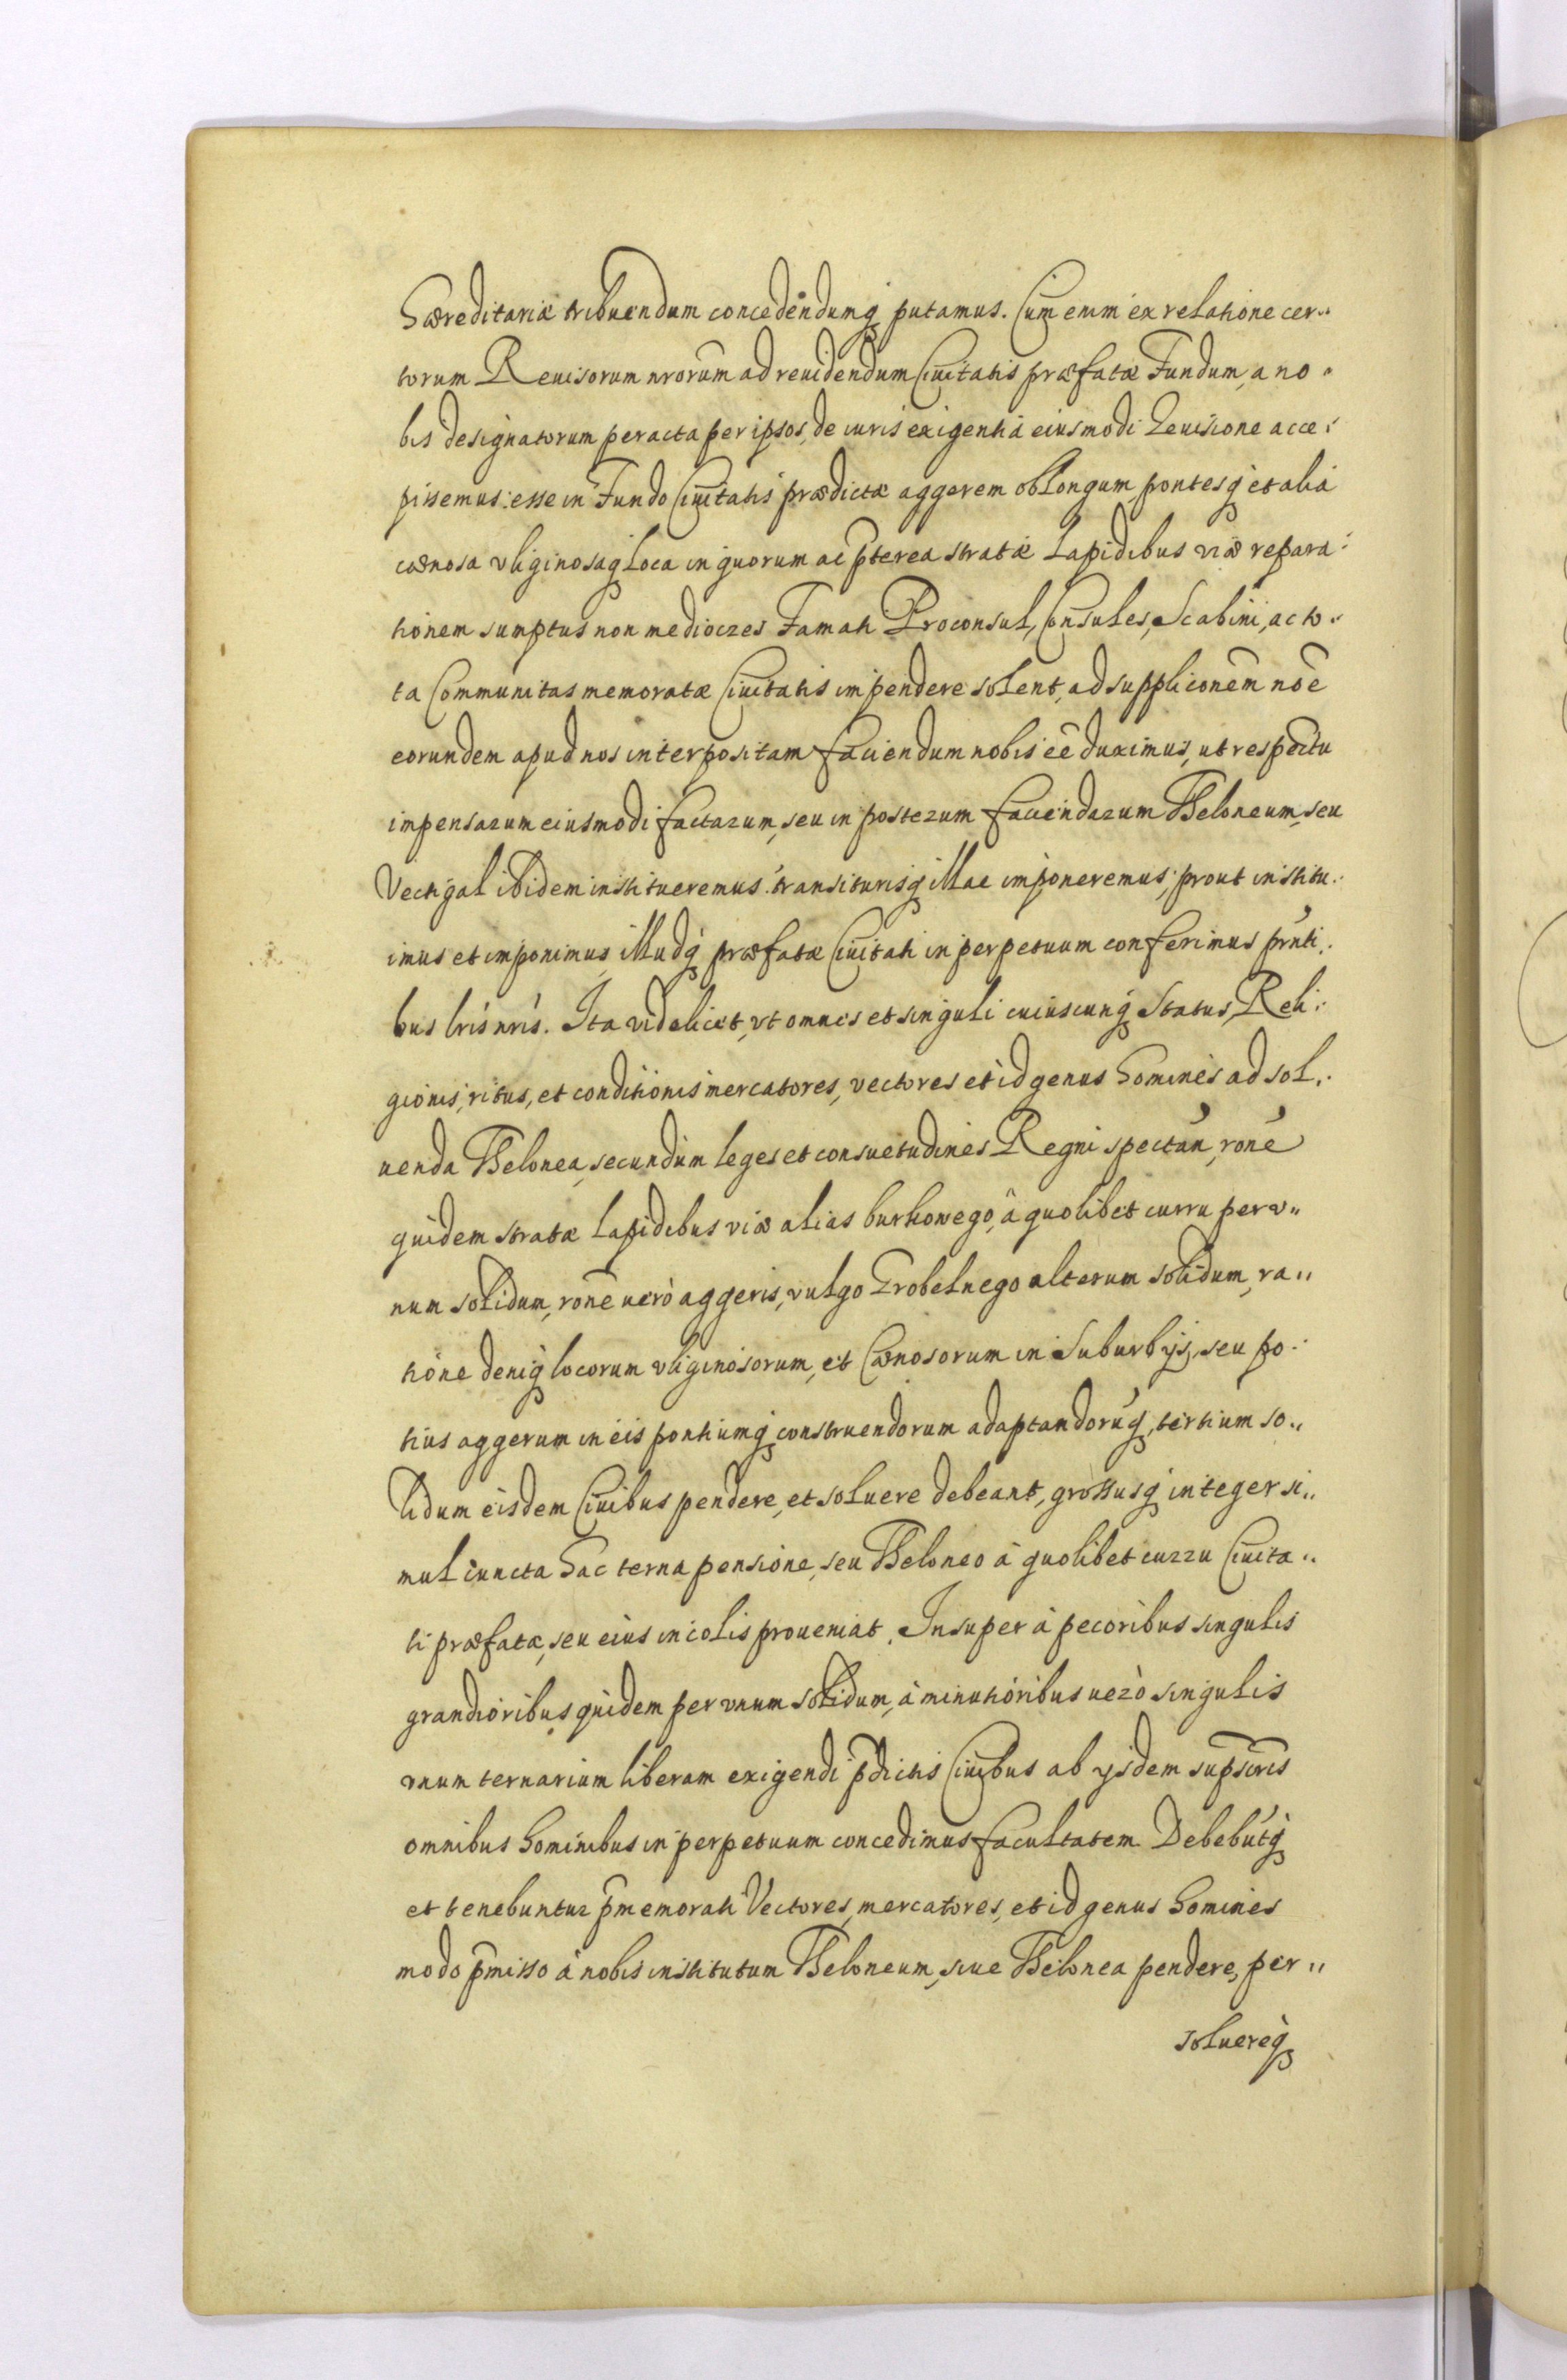 Hæreditariæ tribuendum concedendumq́ putamus. Cum enim ex relatione cer„
torum Reuisorum nrorum ad reuidendum Ciuitatis præfatæ Fundum, a no„
bis designatorum peracta per ipsos, de iuris exigentia eiusmodi Reuisione acce:
pissemus: esse in Fundo Ciuitatis prædictæ aggerem oblongum, pontesq́ et alia
cænosa vliginosaq́ Loca in quorum ac p̃terea stratæ Lapidibus viæ repara:
tionem sumptus non mediocres Famati Proconsul, Consules, Scabini, ac to„
ta Communitas memoratæ Ciuitatis impendere solent, ad suppliconẽm noẽ
eorundem apud nos interpositam faciendum nobis eẽ duximus, ut respectu
impensarum eiusmodi factarum, seu in posterum faciendarum Theloneum, seu
Vectigal ibidem institueremus: transiturisq́ illac imponeremus; prout institu:
imus et imponimus, illudq́ præfatæ Ciuitati in perpetuum conferimus pr̃nti:
bus lrís nrís. Ita videlicet, vt omnes et singuli cuiuscunq́ Status, Reli:
gionis, ritus, et conditionis mercatores, vectores et id genus Homines ad sol„
uenda Thelonea, secundum leges et consuetudines Regni spectań, roné
quidem stratæ Lapidibus viæ alias burkowego, à quolibet curru per v„
num solidum, rone uerò aggeris, vulgo Grobelnego alterum solidum, ra„
tione deniq́ locorum vliginosorum, et Cænosorum in Suburbijs, seu po:
tius aggerum in eis pontiumq́ construendorum adaptandorúq́, tertium so„
lidum eisdem Ciuibus pendere, et soluere debeant, grossusq́ integer si„
mul iuncta Hac terna pensione, seu Theloneo à quolibet curru Ciuita„
ti præfatæ, seu eius incolis proueniat. Insuper à pecoribus singulis
grandioribus quidem per vnum solidum, à minutioribus uerò singulis
vnum ternarium liberam exigendi p̃dictis Ciuibus ab ijsdem supscr̃is
omnibus Hominibus in perpetuum concedimus facultatem. Debebútq́
et tenebuntur p̃memorati Vectores, mercatores, et id genus Homines
modo p̃misso à nobis institutum Theloneum, siue Thelonea pendere, per„
soluereq́